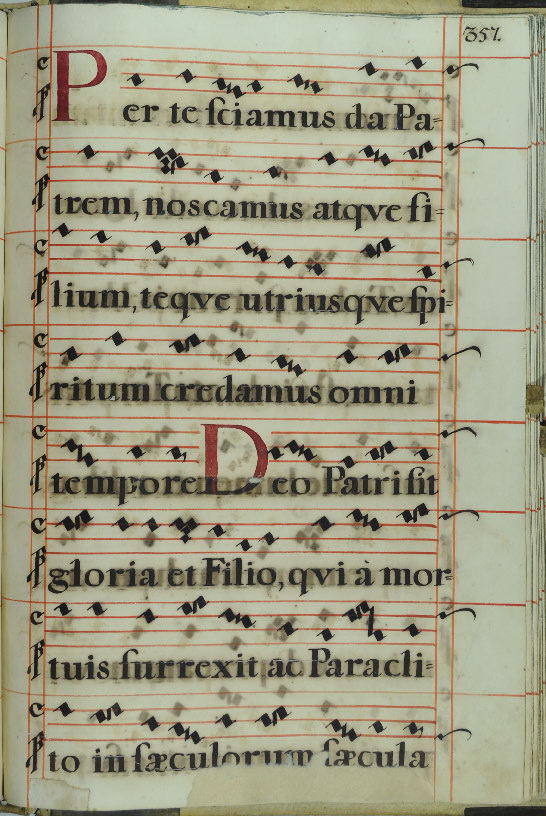 357.
Per te sciamus da Pa=
trem, noscamus atqve fi=
lium, teqve utriusqve spi=
ritum credamus omni
tempore Deo Patri sit
gloria et Filio, qvi à mor=
tuis surrexit ac Paracli=
to in sæculorum sæcula